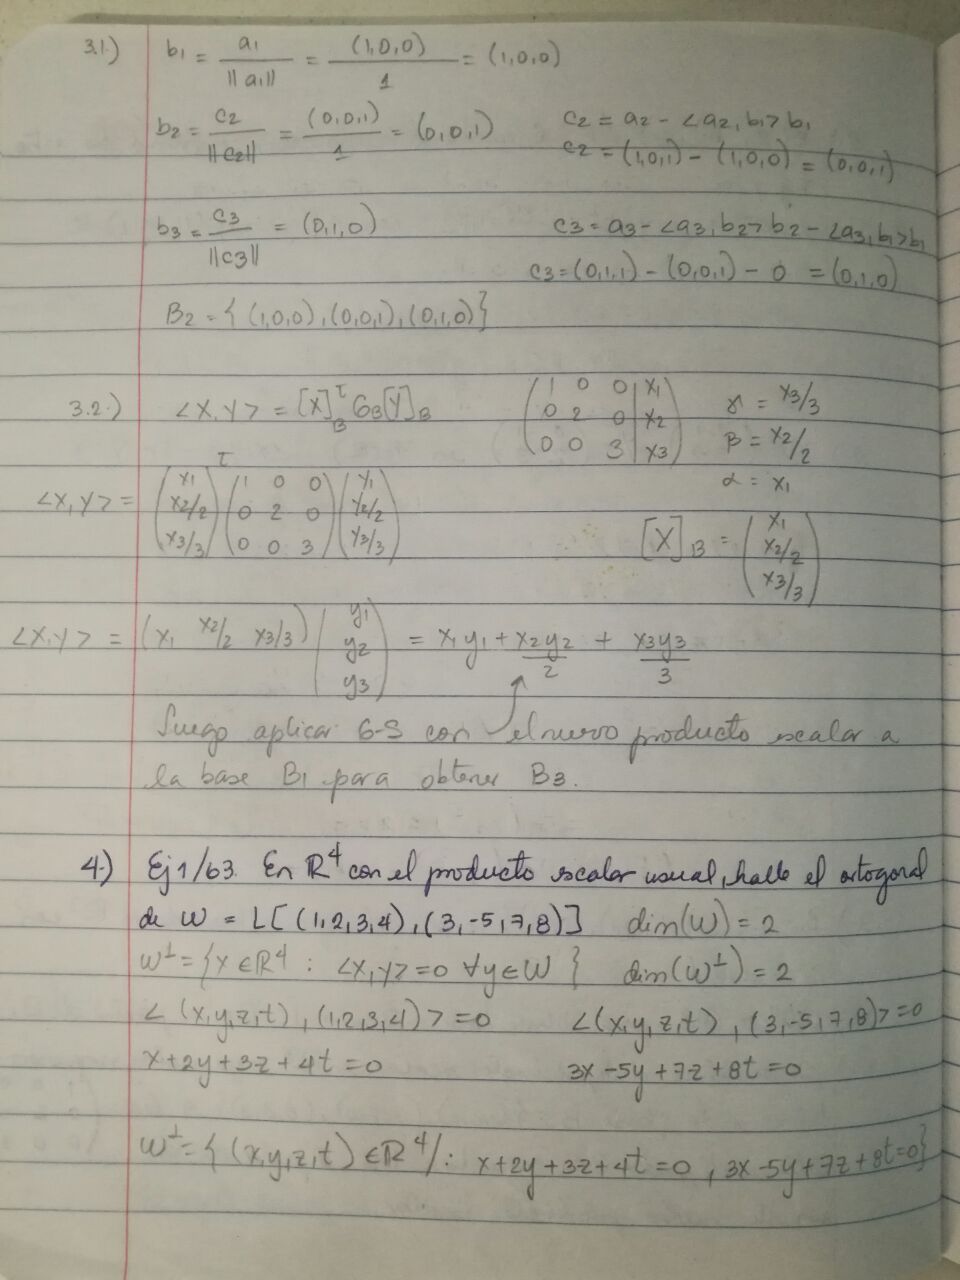 3.1.) b1 = a1 / ||a1|| = (1,0,0) / 1 = (1,0,0)
b2 = c2 / ||c2|| = (0,0,1) / 1 = (0,0,1) c2 = a2 - <a2,b1> b1
c2 = (1,0,1) - (1,0,0) = (0,0,1)
b3 = c3 / ||c3|| = (0,1,0) c3 = a3 - <a3,b2> b2 - <a3,b1> b1
c3 = (0,1,1) - (0,0,1) - 0 = (0,1,0)
B2 = { (1,0,0), (0,0,1), (0,1,0) }
3.2.) <X,Y> = [X]_B^T G_B [Y]_B
( 1 0 0 | x1
0 2 0 | x2
0 0 3 | x3 )
γ = x3/3
β = x2/2
α = x1
<X,Y> = ( x1
x2/2
x3/3 )^T ( 1 0 0
0 2 0
0 0 3 ) ( y1
y2/2
y3/3 )
[X]_B = ( x1
x2/2
x3/3 )
<X,Y> = (x1 x2/2 x3/3) ( y1
y2
y3 ) = x1y1 + x2y2/2 + x3y3/3
Luego aplicar G-S con el nuevo producto escalar a
la base B1 para obtener B3.
4.) Ej 1/63. En R^4 con el producto escalar usual, halle el ortogonal
de W = L[(1,2,3,4),(3,-5,7,8)] dim(W) = 2
W^⊥ = {X ∈ R^4 : <X,Y> = 0 ∀y ∈ W } dim(W^⊥) = 2
<(x,y,z,t), (1,2,3,4)> = 0 <(x,y,z,t), (3,-5,7,8)> = 0
x+2y+3z+4t=0 3x-5y+7z+8t=0
W^⊥ = { (x,y,z,t) ∈ R^4/: x+2y+3z+4t=0, 3x-5y+7z+8t=0}